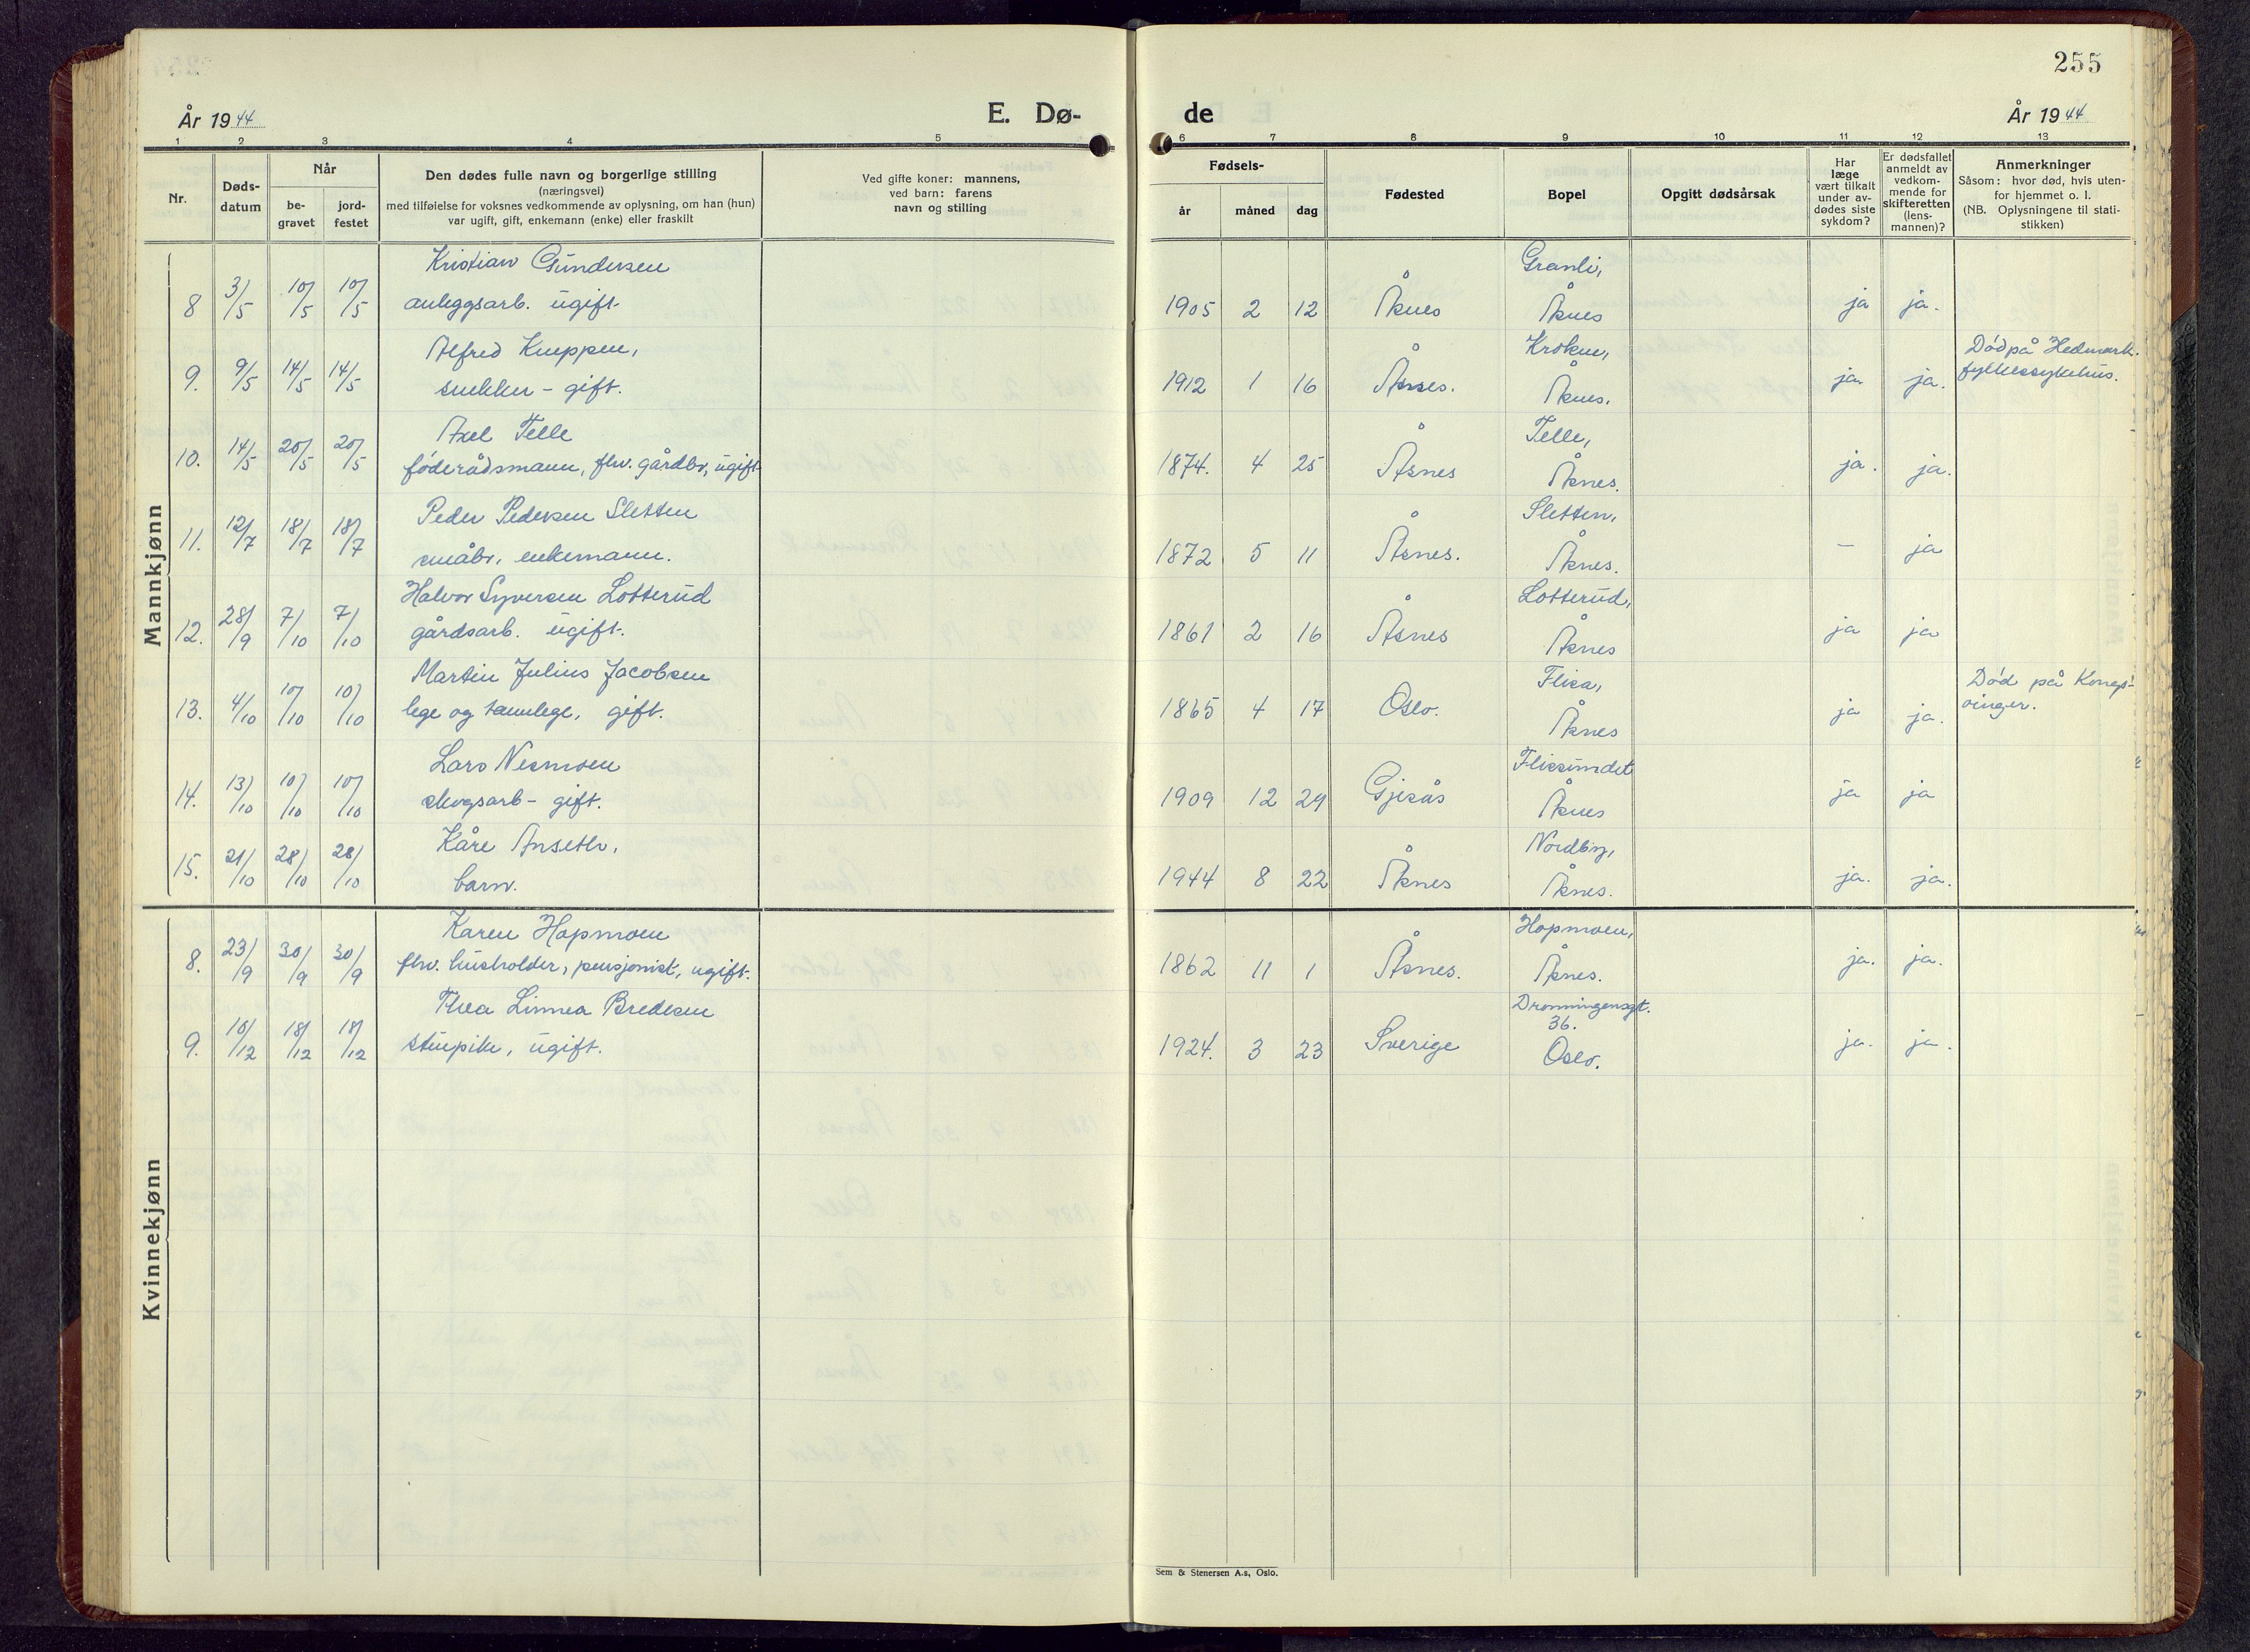 255
År 1944
E. Dø-
de
År 1944
1 2 3 4 5 6 7 8 9 10 11 12 13
Nr.
Døds-
datum
Når
be-
gravet
jord-
festet
Den dødes fulle navn og borgerlige stilling
(næringsvei)
med tilføielse for voksnes vedkommende av oplysning, om han (hun)
var ugift, gift, enkemann (enke) eller fraskilt
Ved gifte koner: mannens,
ved barn: farens
navn og stilling
Fødsels-
år måned dag
Fødested
Bopel
Opgitt dødsårsak
Har
læge
vært tilkalt
under av-
dødes siste
sykdom?
Er dødsfallet
anmeldt av
vedkom-
mende for
skifteretten
(lens-
mannen)?
Anmerkninger
Såsom: hvor død, hvis uten-
for hjemmet o. l.
(NB. Oplysningene til stati-
stikken)
Mannkjønn
Kristian Gundersen Granli,
8 3/5 10/5 10/5 anleggsarb. ugift 1905 2 12 Åsnes Åsnes ja ja.
Alfred Kneppen, Kroken, Død på Hedmark
9. 9/5 14/5 14/5 snekker - gift. 1912 1 16 Åsnes. Åsnes. ja. ja. fylkessykehus.
Axel Telle Telle,
10. 14/5 20/5 20/5 føderådsmann, fhv. gårdbr, ugift 1874. 4 25 Åsnes Åsnes. ja. ja.
Peder Pedersen Sletten Sletten,
11. 12/7 18/7 18/7 småbr, enkemann. 1872 5 11 Åsnes. Åsnes. — ja
Halvor Syversen Lotterud Lotterud,
12. 28/9 7/10 7/10 gårdsarb. ugift. 1861 2 16 Åsnes Åsnes ja ja
Martin Julius Jacobsen Flisa, Død på Kongs-
13. 4/10 10/10 10/10 lege og tannlege, gift. 1865 4 17 Oslo. Åsnes ja ja. vinger.
Lars Nesmoen Flissundet
14. 13/10 10/10 10/10 skogsarb - gift. 1909 12 29 Gjesås Åsnes ja ja
Kåre Anseth, Nordby,
15. 21/10 28/10 28/10 barn. 1944 8 22 Åsnes Åsnes. ja. ja.
Kvinnekjønn
Karen Hopmoen Hopmoen,
8. 23/9 30/9 30/9 fhv. husholder, pensjonist, ugift. 1862 11 1 Åsnes. Åsnes. ja. ja.
Thea Linnea Bredesen Dronningensgt.
36.
9. 10/12 18/12 18/12 stuepike, ugift. 1924. 3 23 Sverige Oslo. ja. ja.
Sem & Stenersen A.s, Oslo.